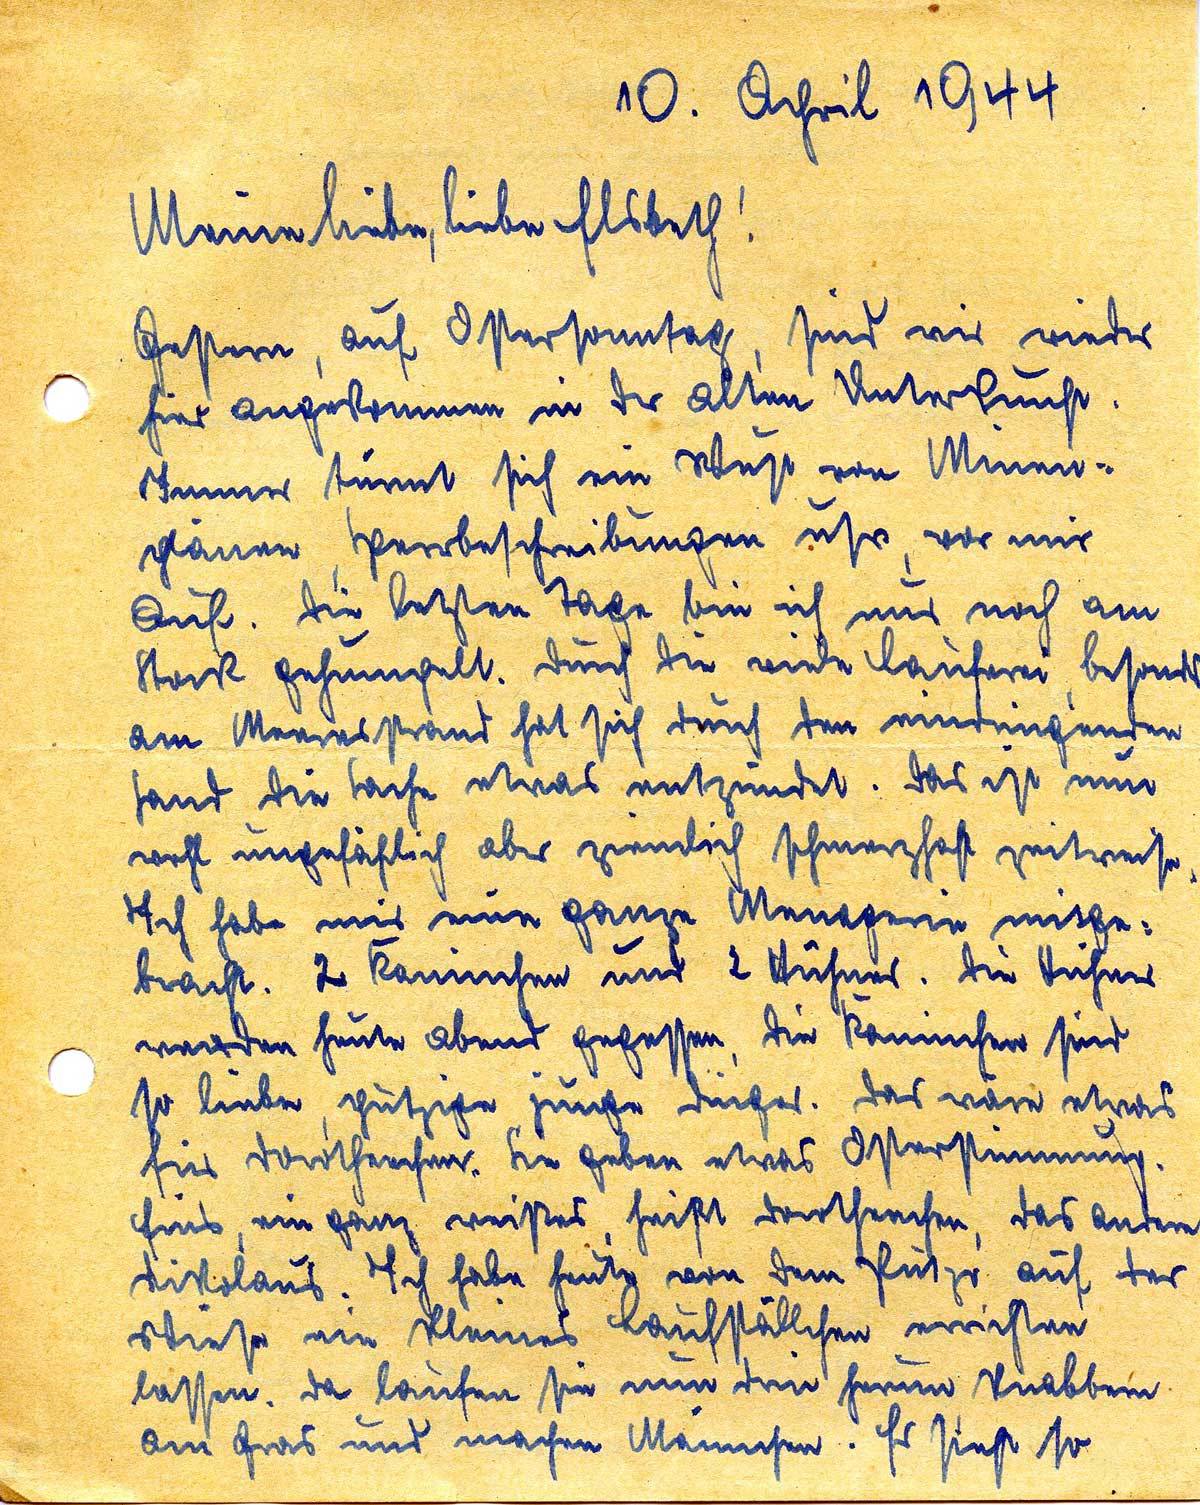 10. April 1944
Meine liebe, liebe Elsbeth!
Gestern, auf Ostersonntag, sind wir wieder
hier angekommen in der alten Unterkunft.
Immer türmt sich ein Wust von Minen-
plänen, Sperrbeschreibungen usw, vor mir
auf. Die letzten Tage bin ich nur noch am
Stock gehumpelt. Durch die viele Lauferei, besonders
am Meeresstrand hat sich durch den eindringenden
Sand die Sache etwas entzündet. Das ist nun
wohl ungefährlich aber ziemlich schmerzhaft zeitweise.
Ich habe mir eine ganze Menagerie mitge-
bracht. 2 Kaninchen und 2 Hühner. Die Hühner
werden heute abend gegessen, die Kaninchen sind
so liebe, putzige junge Dinger. Das wäre etwas
für Dorotheechen. Sie geben etwas Osterstimmung.
Eins, ein ganz weißes, heißt Dorotheechen, das andere
Nikolaus. Ich habe heute von dem auf der
Wiese ein kleines Laufställchen errichten
lassen. Da laufen sie nun drin herum knabbern
am Gras und machen Männchen. Es sieht so